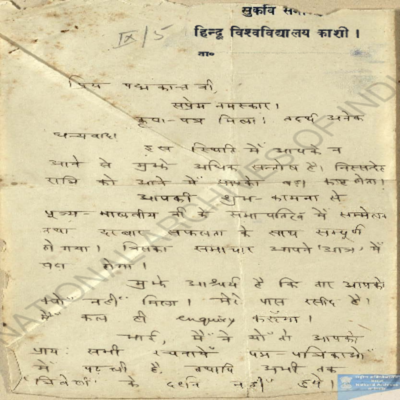 सुकवि समा
IX/5
हिन्दू विश्वविद्यालय काशी ।
ता०
प्रिय पद्मकान्त जी,
सप्रेम नमस्कार ।
कृपा-पत्र मिला । तदर्थ अनेक
धन्यवाद ।
इस स्थिति में आपके न
आने से मुझे अधिक सन्तोष है । निस्सन्देह
रात्रि को आने में आपको बड़ा कष्ट होता ।
आपकी शुभ-कामना से
पूज्य-मालवीय जी के सभापतित्व में सम्मेलन
तथा दरबार सफलता के साथ सम्पूर्ण
हो गया । जिसका समाचार आपने 'आज' में
पढ़ा होगा ।
मुझे आश्चर्य है कि तार आपको
क्यों नहीं मिला । मेरे पास रसीद है ।
कल ही enquiry कराऊँगा ।
भाई, मैंने यों तो आपकी
प्रायः सभी रचनायें पत्र-पत्रिकाओं
में पढ़ ली हैं, तथापि अभी तक
के दर्शन नहीं हुये ।
NATIONAL ARCHIVES OF INDIA